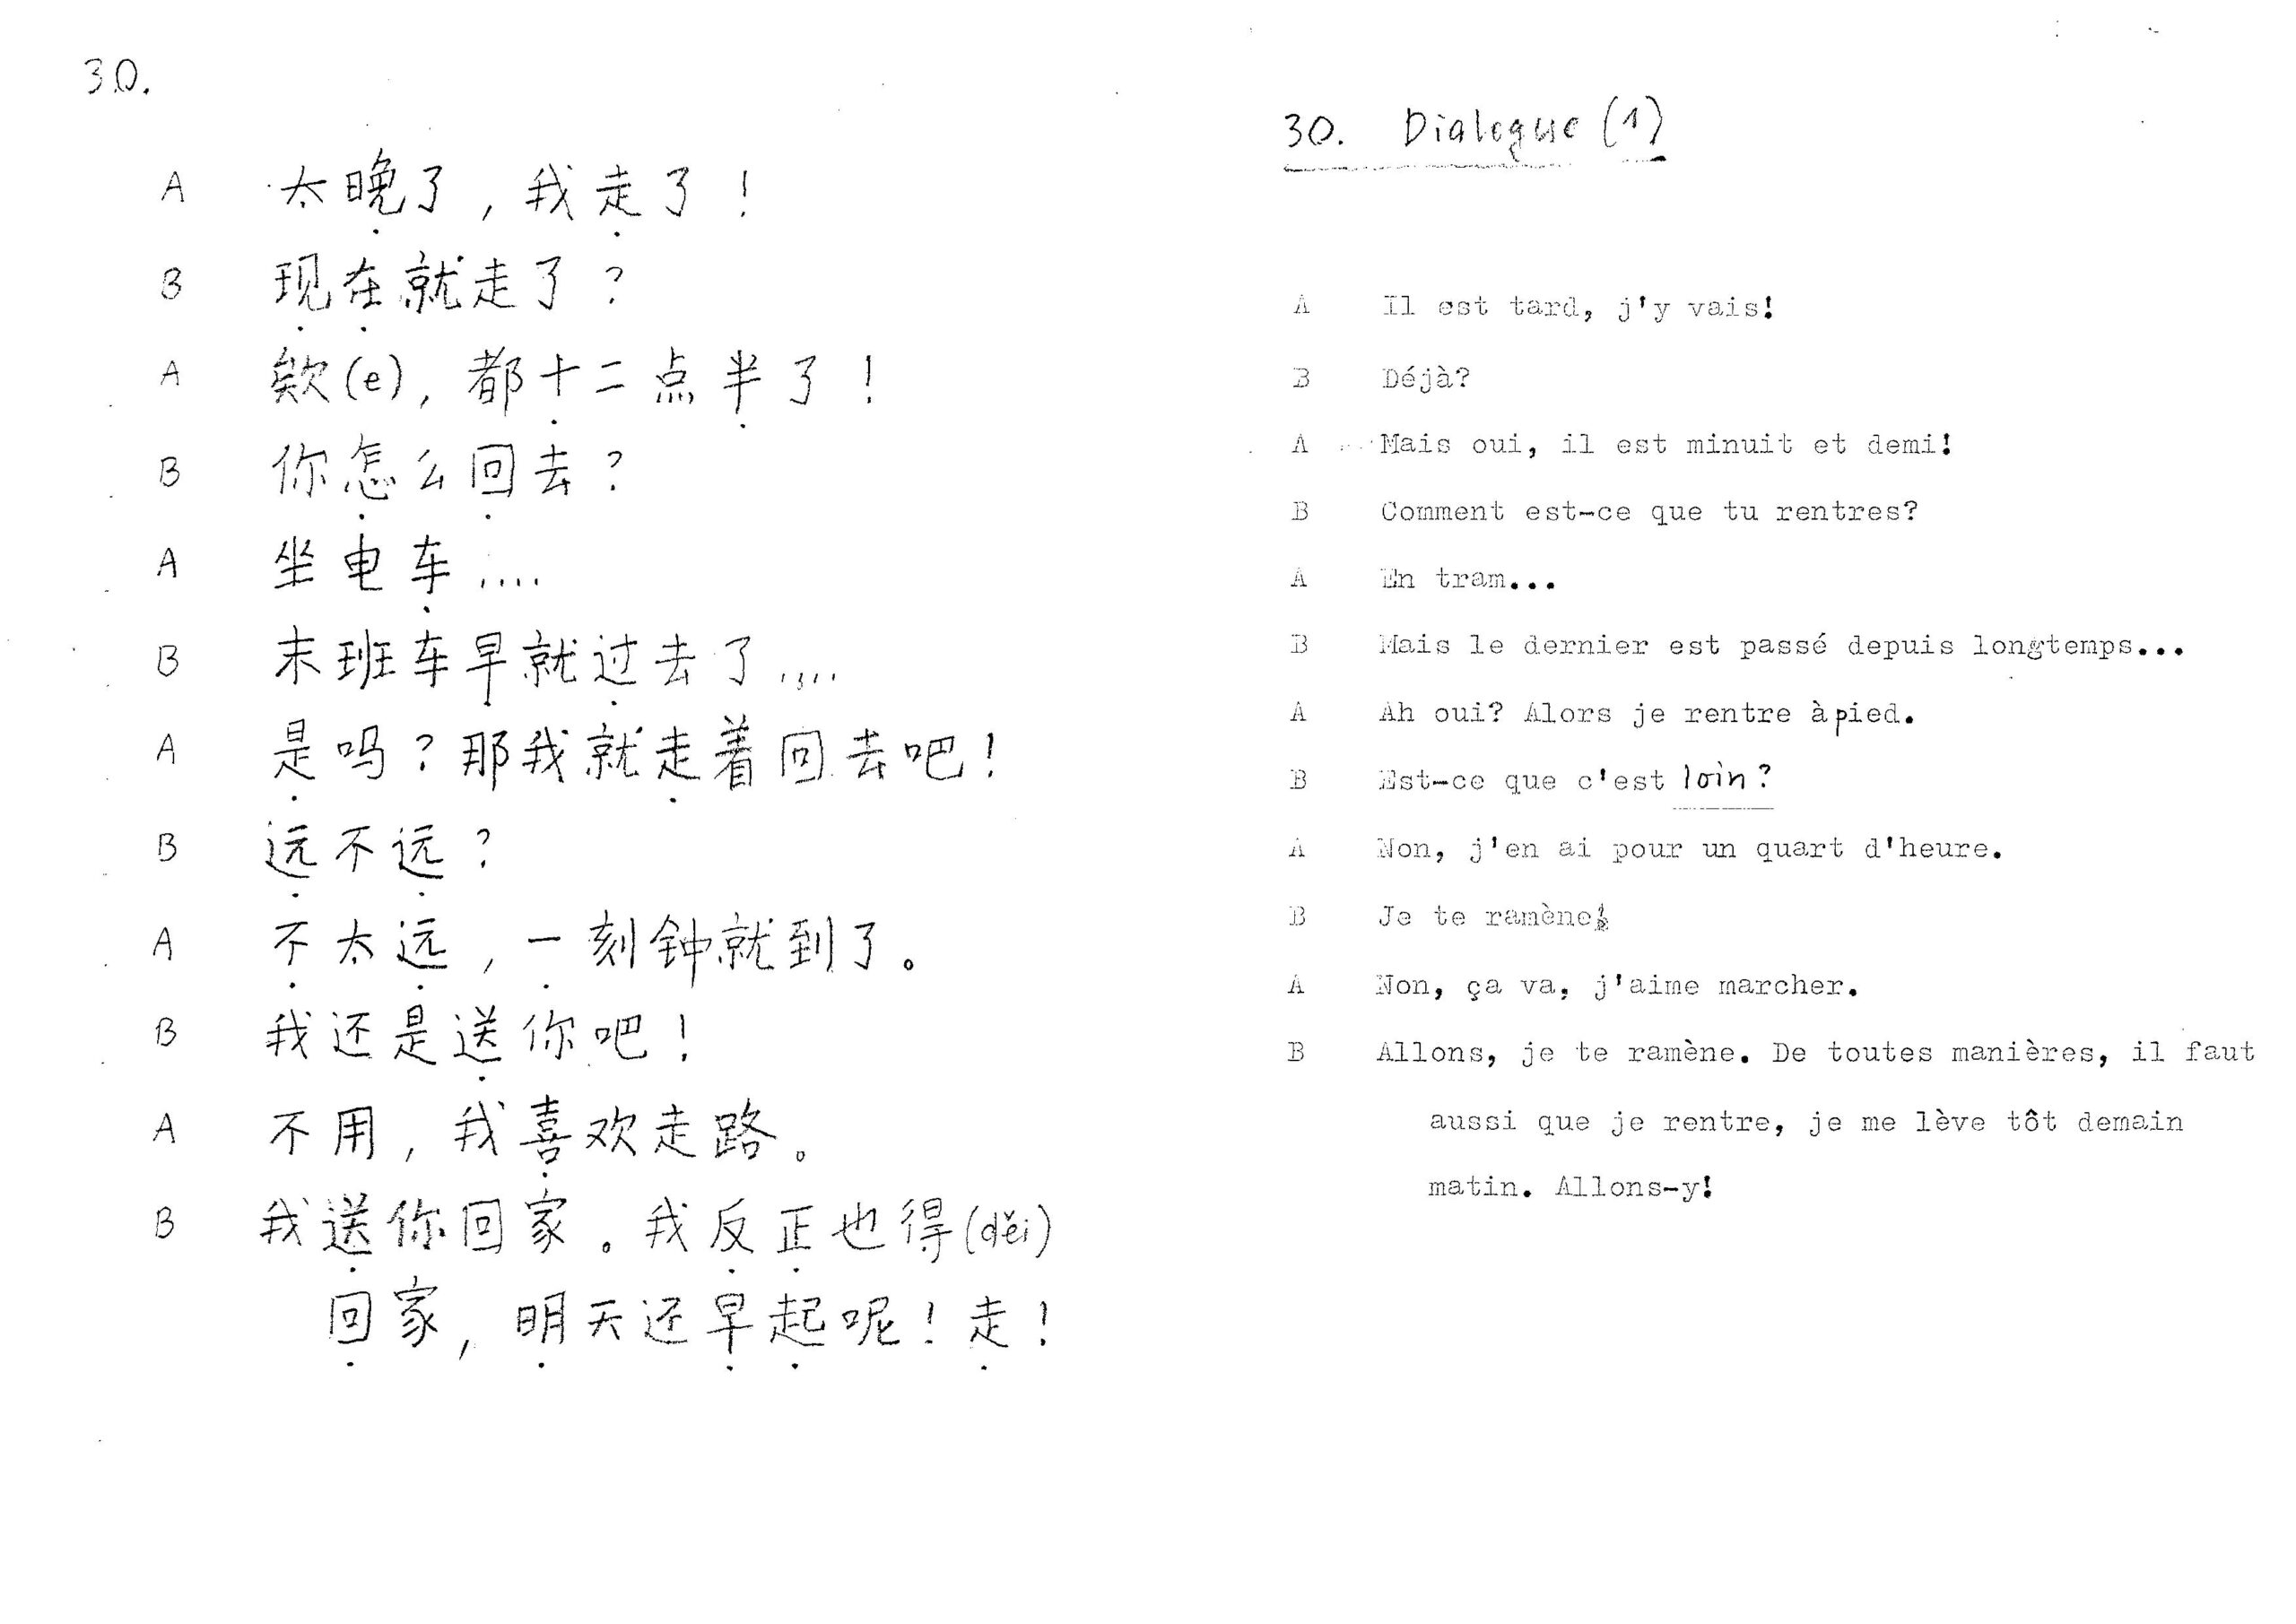 30.
A 太晚了，我走了！
B 现在就走了？
A 欸(e)，都十二点半了！
B 你怎么回去？
A 坐电车....
B 末班车早就过去了.....
A 是吗？那我就走着回去吧！
B 远不远？
A 不太远，一刻钟就到了。
B 我还是送你吧！
A 不用，我喜欢走路。
B 我送你回家。我反正也得(děi)
回家，明天还早起呢！走！
30. Dialogue (1)
A Il est tard, j'y vais!
B Déjà?
A Mais oui, il est minuit et demi!
B Comment est-ce que tu rentres?
A En tram...
B Mais le dernier est passé depuis longtemps...
A Ah oui? Alors je rentre à pied.
B Est-ce que c'est loin?
A Non, j'en ai pour un quart d'heure.
B Je te ramène!
A Non, ça va, j'aime marcher.
B Allons, je te ramène. De toutes manières, il faut
aussi que je rentre, je me lève tôt demain
matin. Allons-y!